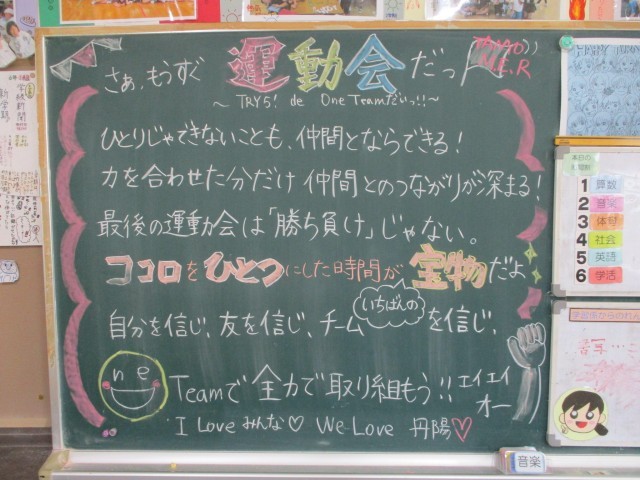 さぁ、もうすぐ 運動会だっ
TAMO
M.E.R
～TRY5! de One Teamだいっ!!～
ひとりじゃできないことも、仲間とならできる!
力を合わせた分だけ仲間とのつながりが深まる!
最後の運動会は「勝ち負け」じゃない。
ココロをひとつにした時間が宝物だよ
いちばんの
自分を信じ、友を信じ、チームを信じ、
n e
Teamで全力で取り組もう!! エイエイ
オー
I Love みんな♡ We Love 丹陽♡
音楽
本日の
時間割
1 算数
2 音楽
3 体育
4 社会
5 英語
6 学活
学級新聞
新学期